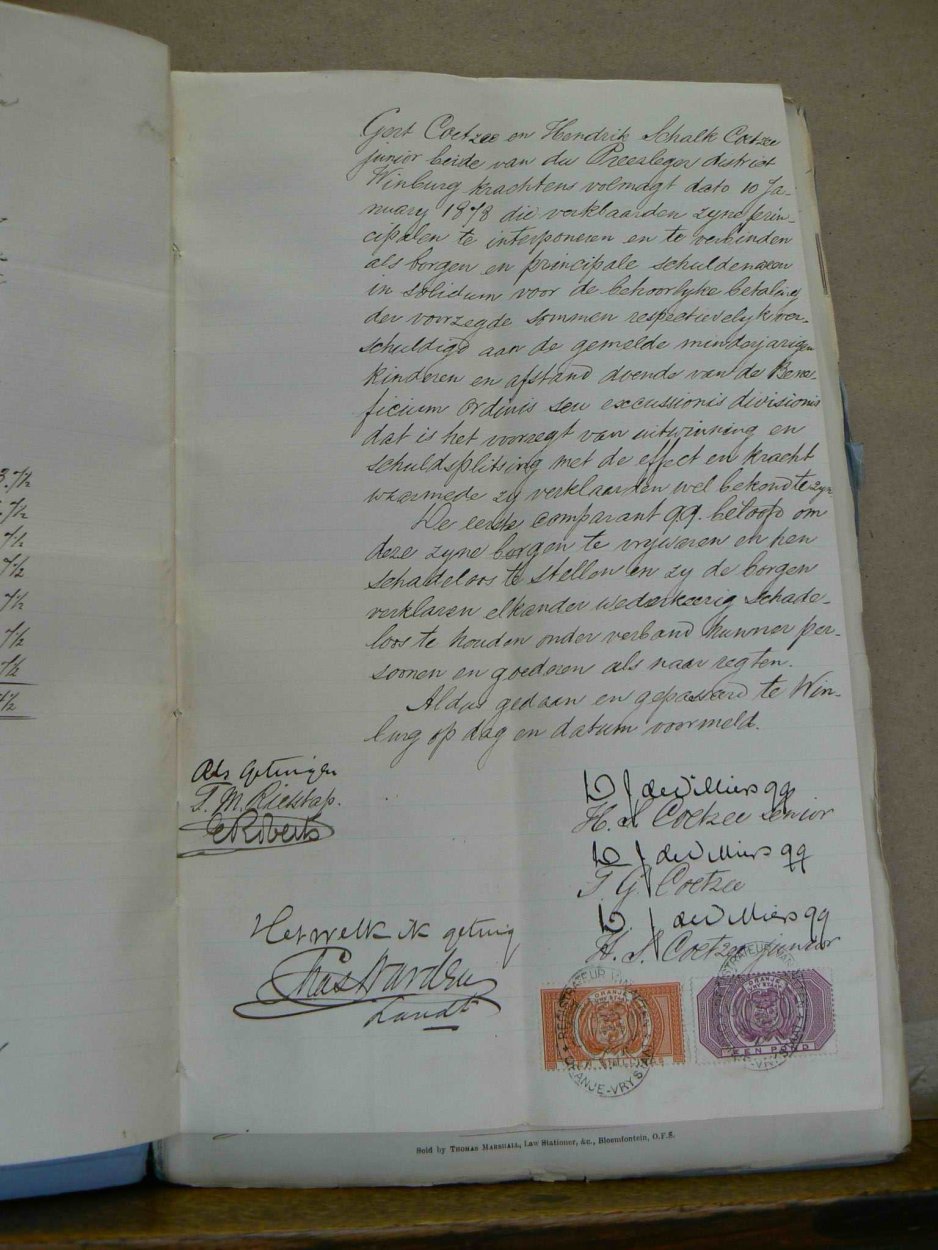 3.7½
.7½
7½
7½
7½
7½
7½
Gert Coetzee en Hendrik Schalk Coetzee
junior beide van die district
Winburg krachtens volmagt dato 10 Ja-
nuary 1878 die verklaarden zyne prin-
cipalen te interponeren en te verbinden
als borgen en principale schuldenaren
in solidum voor de behoorlyke betaling
der voorzegde sommen respectievelyk ver-
schuldigd aan de gemelde minderjarigen
kinderen en afstand doende van de Bene-
ficium Ordinis seu excussionis divisionis
dat is het voorregt van uitwinning en
schuldsplitsing met de effect en kracht
waarmede zy verklaarden wel bekend te zyn
De eerste comparant qq. beloofd om
deze zyne borgen te vrywaren en hen
schadeloos te stellen en zy de borgen
verklaren elkander wederkeerig schade-
loos te houden onder verband hunner per-
soonen en goederen als naar regten.
Aldus gedaan en gepasseerd te Win-
burg op dag en datum voormeld.
Als getuigen
T. M. Rietstap.
E Roberts
D J de Villiers qq
H. S. Coetzee senior
D J de Villiers qq
T G Coetzee
D J de Villiers qq
H. S. Coetzee junior
Het welk ik getuig
Chas Warden
Landt
REGISTRATEUR VAN AKTEN
ORANJE-VRYSTAAT
ORANJE
VRY STAAT
ORANJE
VRY STAAT
EEN POND
Sold by THOMAS MARSHALL, Law Stationer, &c., Bloemfontein, O.F.S.